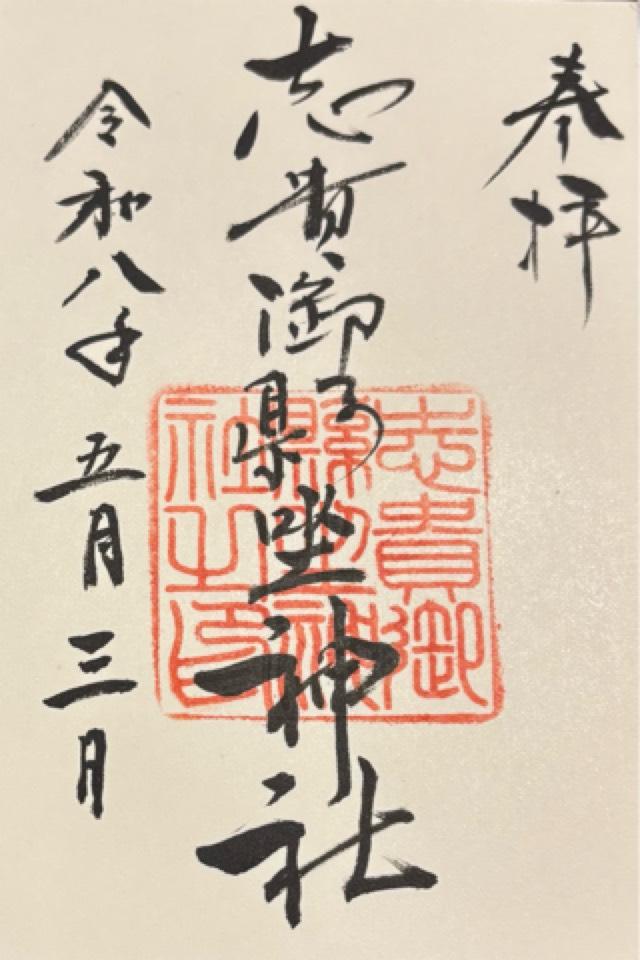 奉拝
志貴御縣坐神社
令和八年五月三日
志貴御
縣坐神
社之印